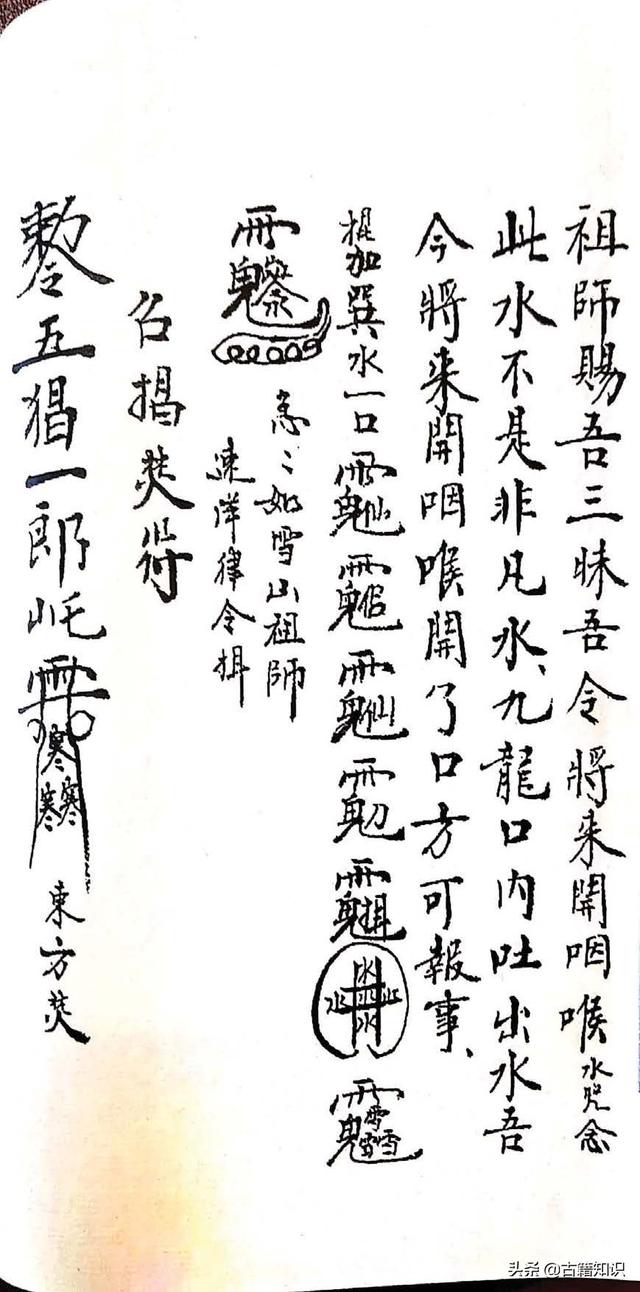 祖師賜吾三昧吾令將来開咽喉水咒念
此水不是非凡水、九龍口內吐出水吾
今將来開咽喉開了口方可報事、
棍加巽水一口
急〻如雪山祖師
速洋律令
召揭焚符
敕令五猖一郎
寒寒寒
東方焚
头条 @古籍知识